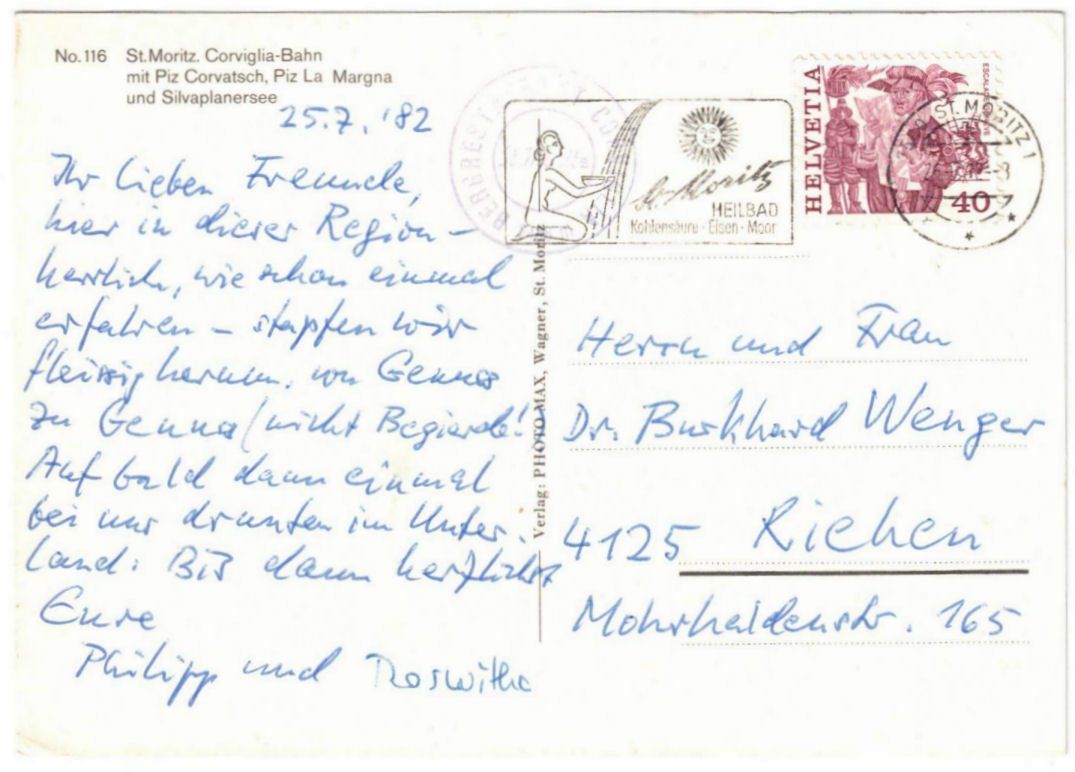 No. 116 St. Moritz. Corviglia-Bahn
mit Piz Corvatsch, Piz La Margna
und Silvaplanersee
25.7. '82
Ihr lieben Freunde,
hier in dieser Region –
herrlich, wie schon einmal
erfahren – stapfen wir
fleissig herum, von Genuss
zu Genuss (nicht Begierde!)
Auf bald dann einmal
bei uns drunten im Unter-
land: Bis dann herzlichst
Eure
Philipp und Roswitha
Verlag: PHOTO MAX, Wagner, St. Moritz
BERGRESTAURANT
St. Moritz
HEILBAD
Kohlensäure · Eisen · Moor
HELVETIA
40
ST. MORITZ 1
Herrn und Frau
Dr. Burkhard Wenger
4125 Riehen
Mohrhaldenstr. 165